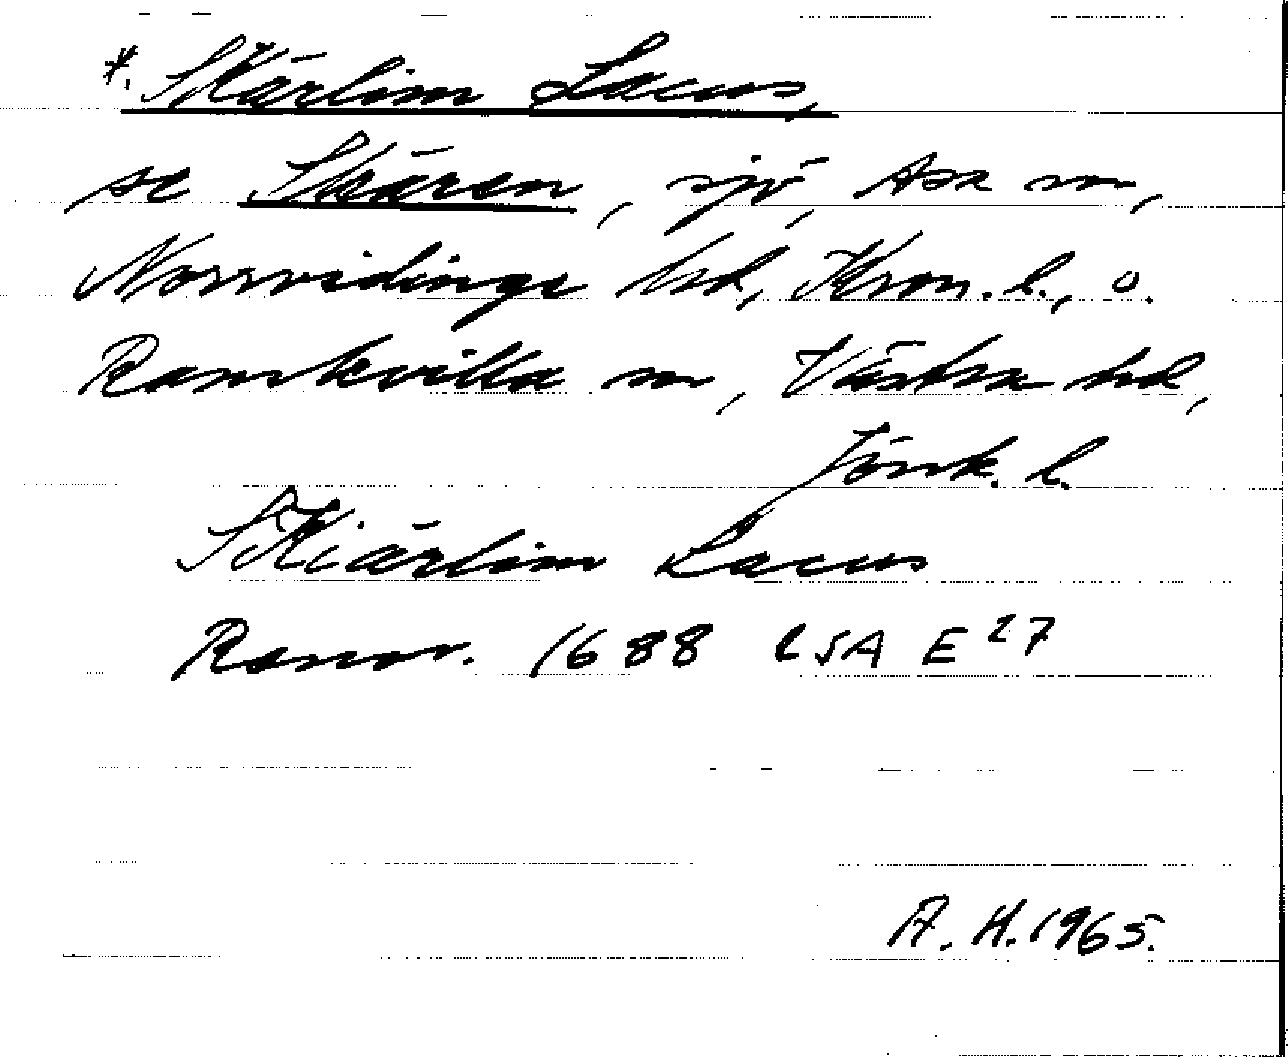 *. Skärlim Lacus,
se Skären, sjö, Asa sn,
Norrvidinge hd, Kron. l., o.
Ramkvilla sn, Västra hd,
Jönk. l.
Skiärlim Lacus
Rannr. 1688 LSA E 27
A. H. 1965.